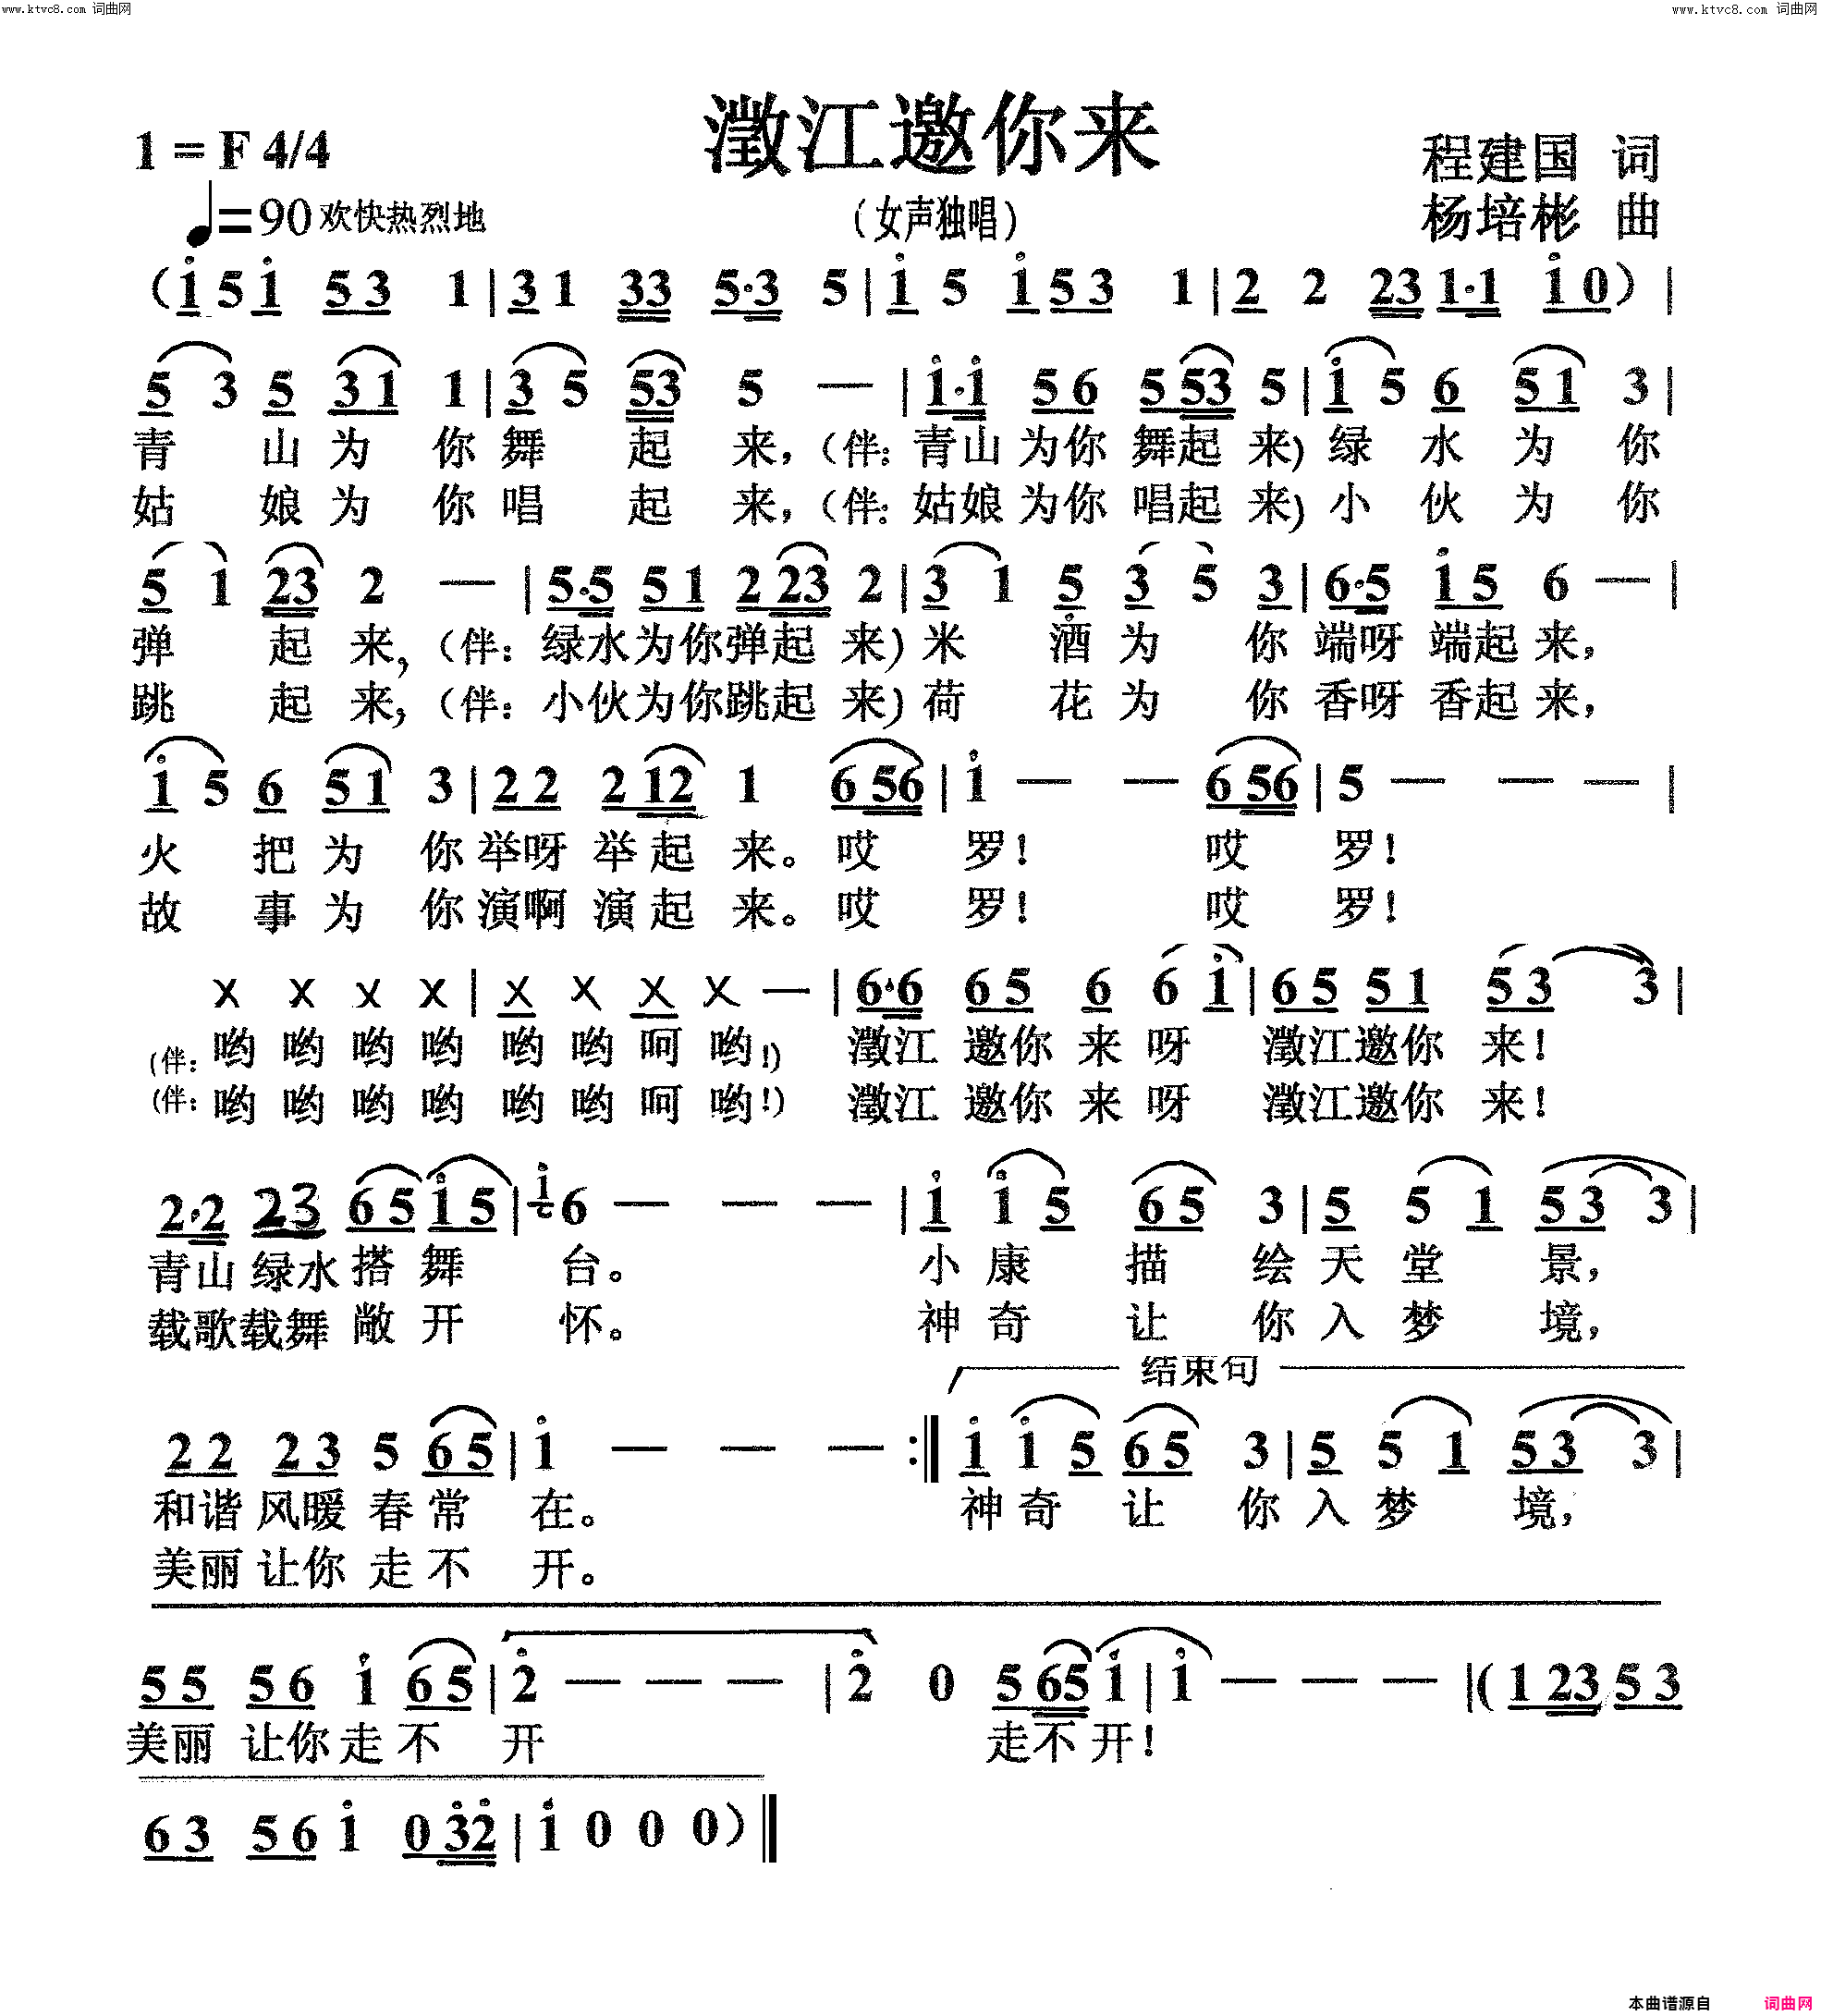 www.ktvc8.com 词曲网
www.ktvc8.com 词曲网
澂江邀你来
1 = F 4/4
程建国 词
♩=90 欢快热烈地
(女声独唱)
杨培彬 曲
(i 5 i 5 3 1 | 3 1 33 5·3 5 | i 5 i 5 3 1 | 2 2 23 1·1 i 0) |
5 3 5 3 1 1 | 3 5 53 5 — | i·i 5 6 5 53 5 | i 5 6 5 1 3 |
青 山 为 你 舞 起 来, (伴: 青山 为你 舞起 来) 绿 水 为 你
姑 娘 为 你 唱 起 来, (伴: 姑娘 为你 唱起 来) 小 伙 为 你
5 1 23 2 — | 5·5 5 1 2 23 2 | 3 1 5 3 5 3 | 6·5 i 5 6 — |
弹 起 来, (伴: 绿水为你弹起 来) 米 酒 为 你 端呀 端起 来,
跳 起 来, (伴: 小伙为你跳起 来) 荷 花 为 你 香呀 香起 来,
i 5 6 5 1 3 | 2 2 2 12 1 6 56 | i — — 6 56 | 5 — — — |
火 把 为 你 举呀 举 起 来。 哎 罗! 哎 罗!
故 事 为 你 演啊 演 起 来。 哎 罗! 哎 罗!
X X X X | X X X X — | 6·6 6 5 6 6 i | 6 5 5 1 5 3 3 |
(伴: 哟 哟 哟 哟 哟 哟 呵 哟!) 澂江 邀你 来 呀 澂江邀你 来!
(伴: 哟 哟 哟 哟 哟 哟 呵 哟!) 澂江 邀你 来 呀 澂江邀你 来!
2·2 23 6 5 i 5 | i 6 — — — | i i 5 6 5 3 | 5 5 1 5 3 3 |
青山 绿水 搭 舞 台。 小 康 描 绘 天 堂 景,
载歌载舞 敞 开 怀。 神 奇 让 你 入 梦 境,
结束句
2 2 2 3 5 6 5 | i — — — :‖ i i 5 6 5 3 | 5 5 1 5 3 3 |
和谐 风暖 春 常 在。 神 奇 让 你 入 梦 境,
美丽 让你 走 不 开。
5 5 5 6 i 6 5 | 2 — — — | 2 0 5 65 i | i — — — | (1 23 5 3
美丽 让你 走 不 开 走不 开!
6 3 5 6 i 0 32 | i 0 0 0) ‖
本曲谱源自 词曲网